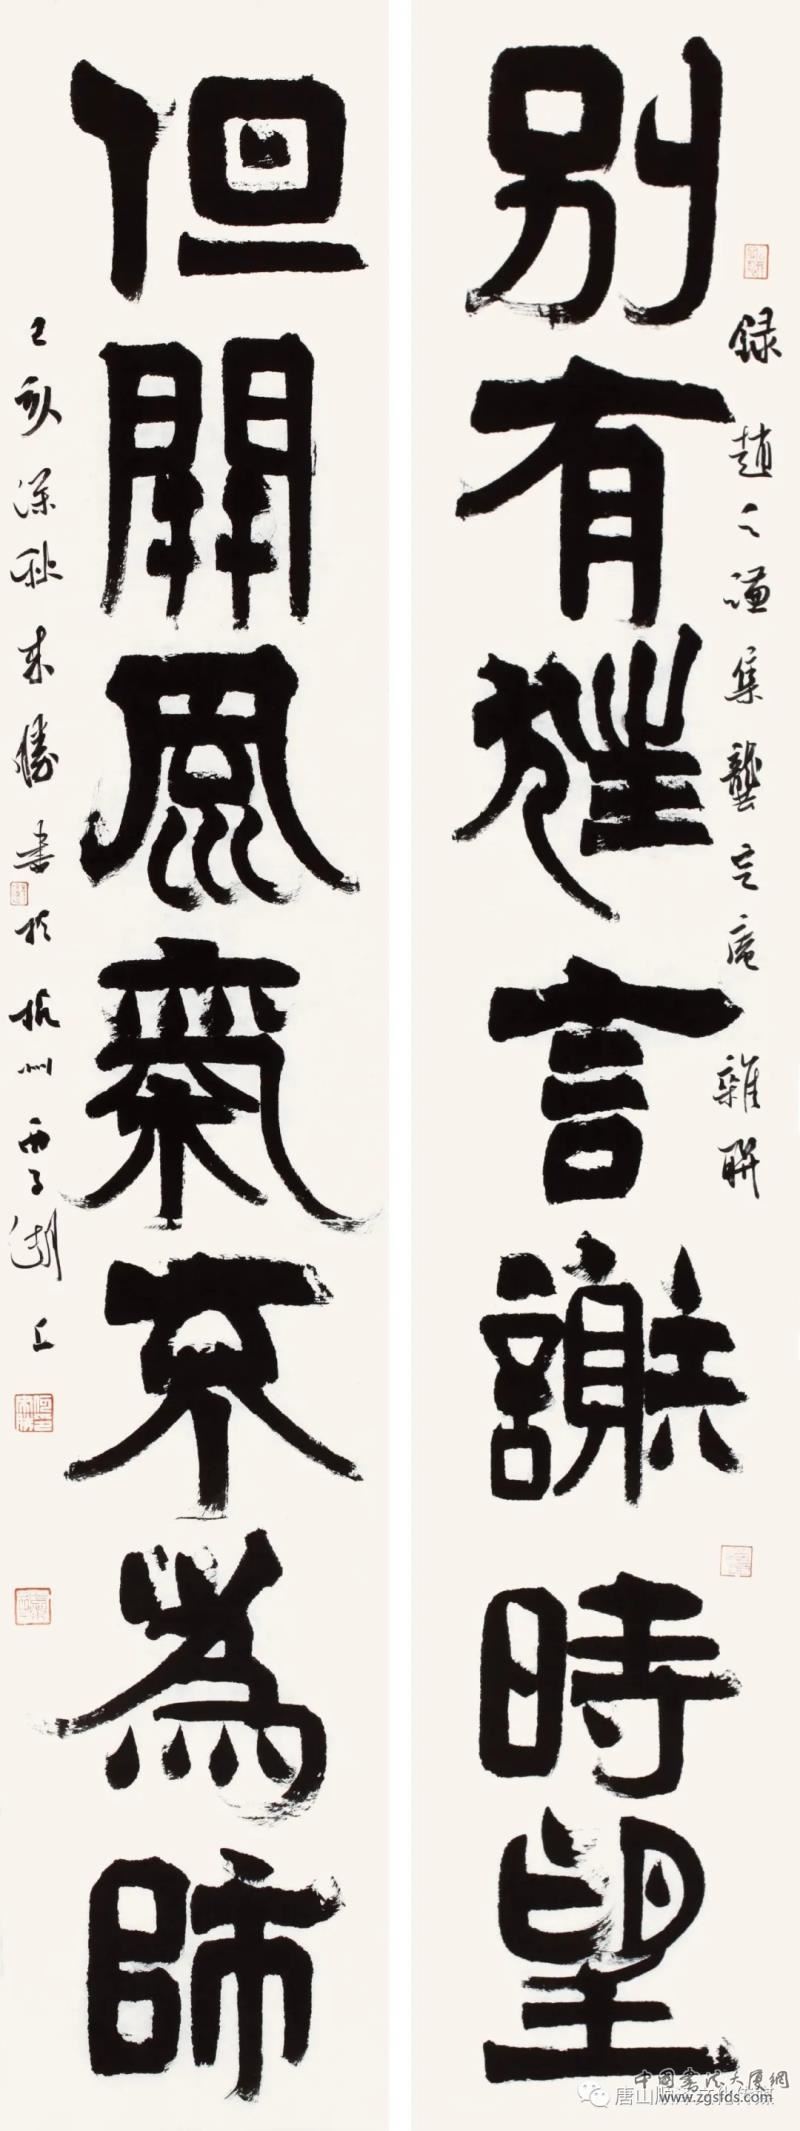 別有狂言謝時望
録趙之謙集龔定庵雜聯
但開風氣不為師
己亥深秋来勝書於杭州西子湖上
中國書法大厦網
www.zgsfds.com
唐山